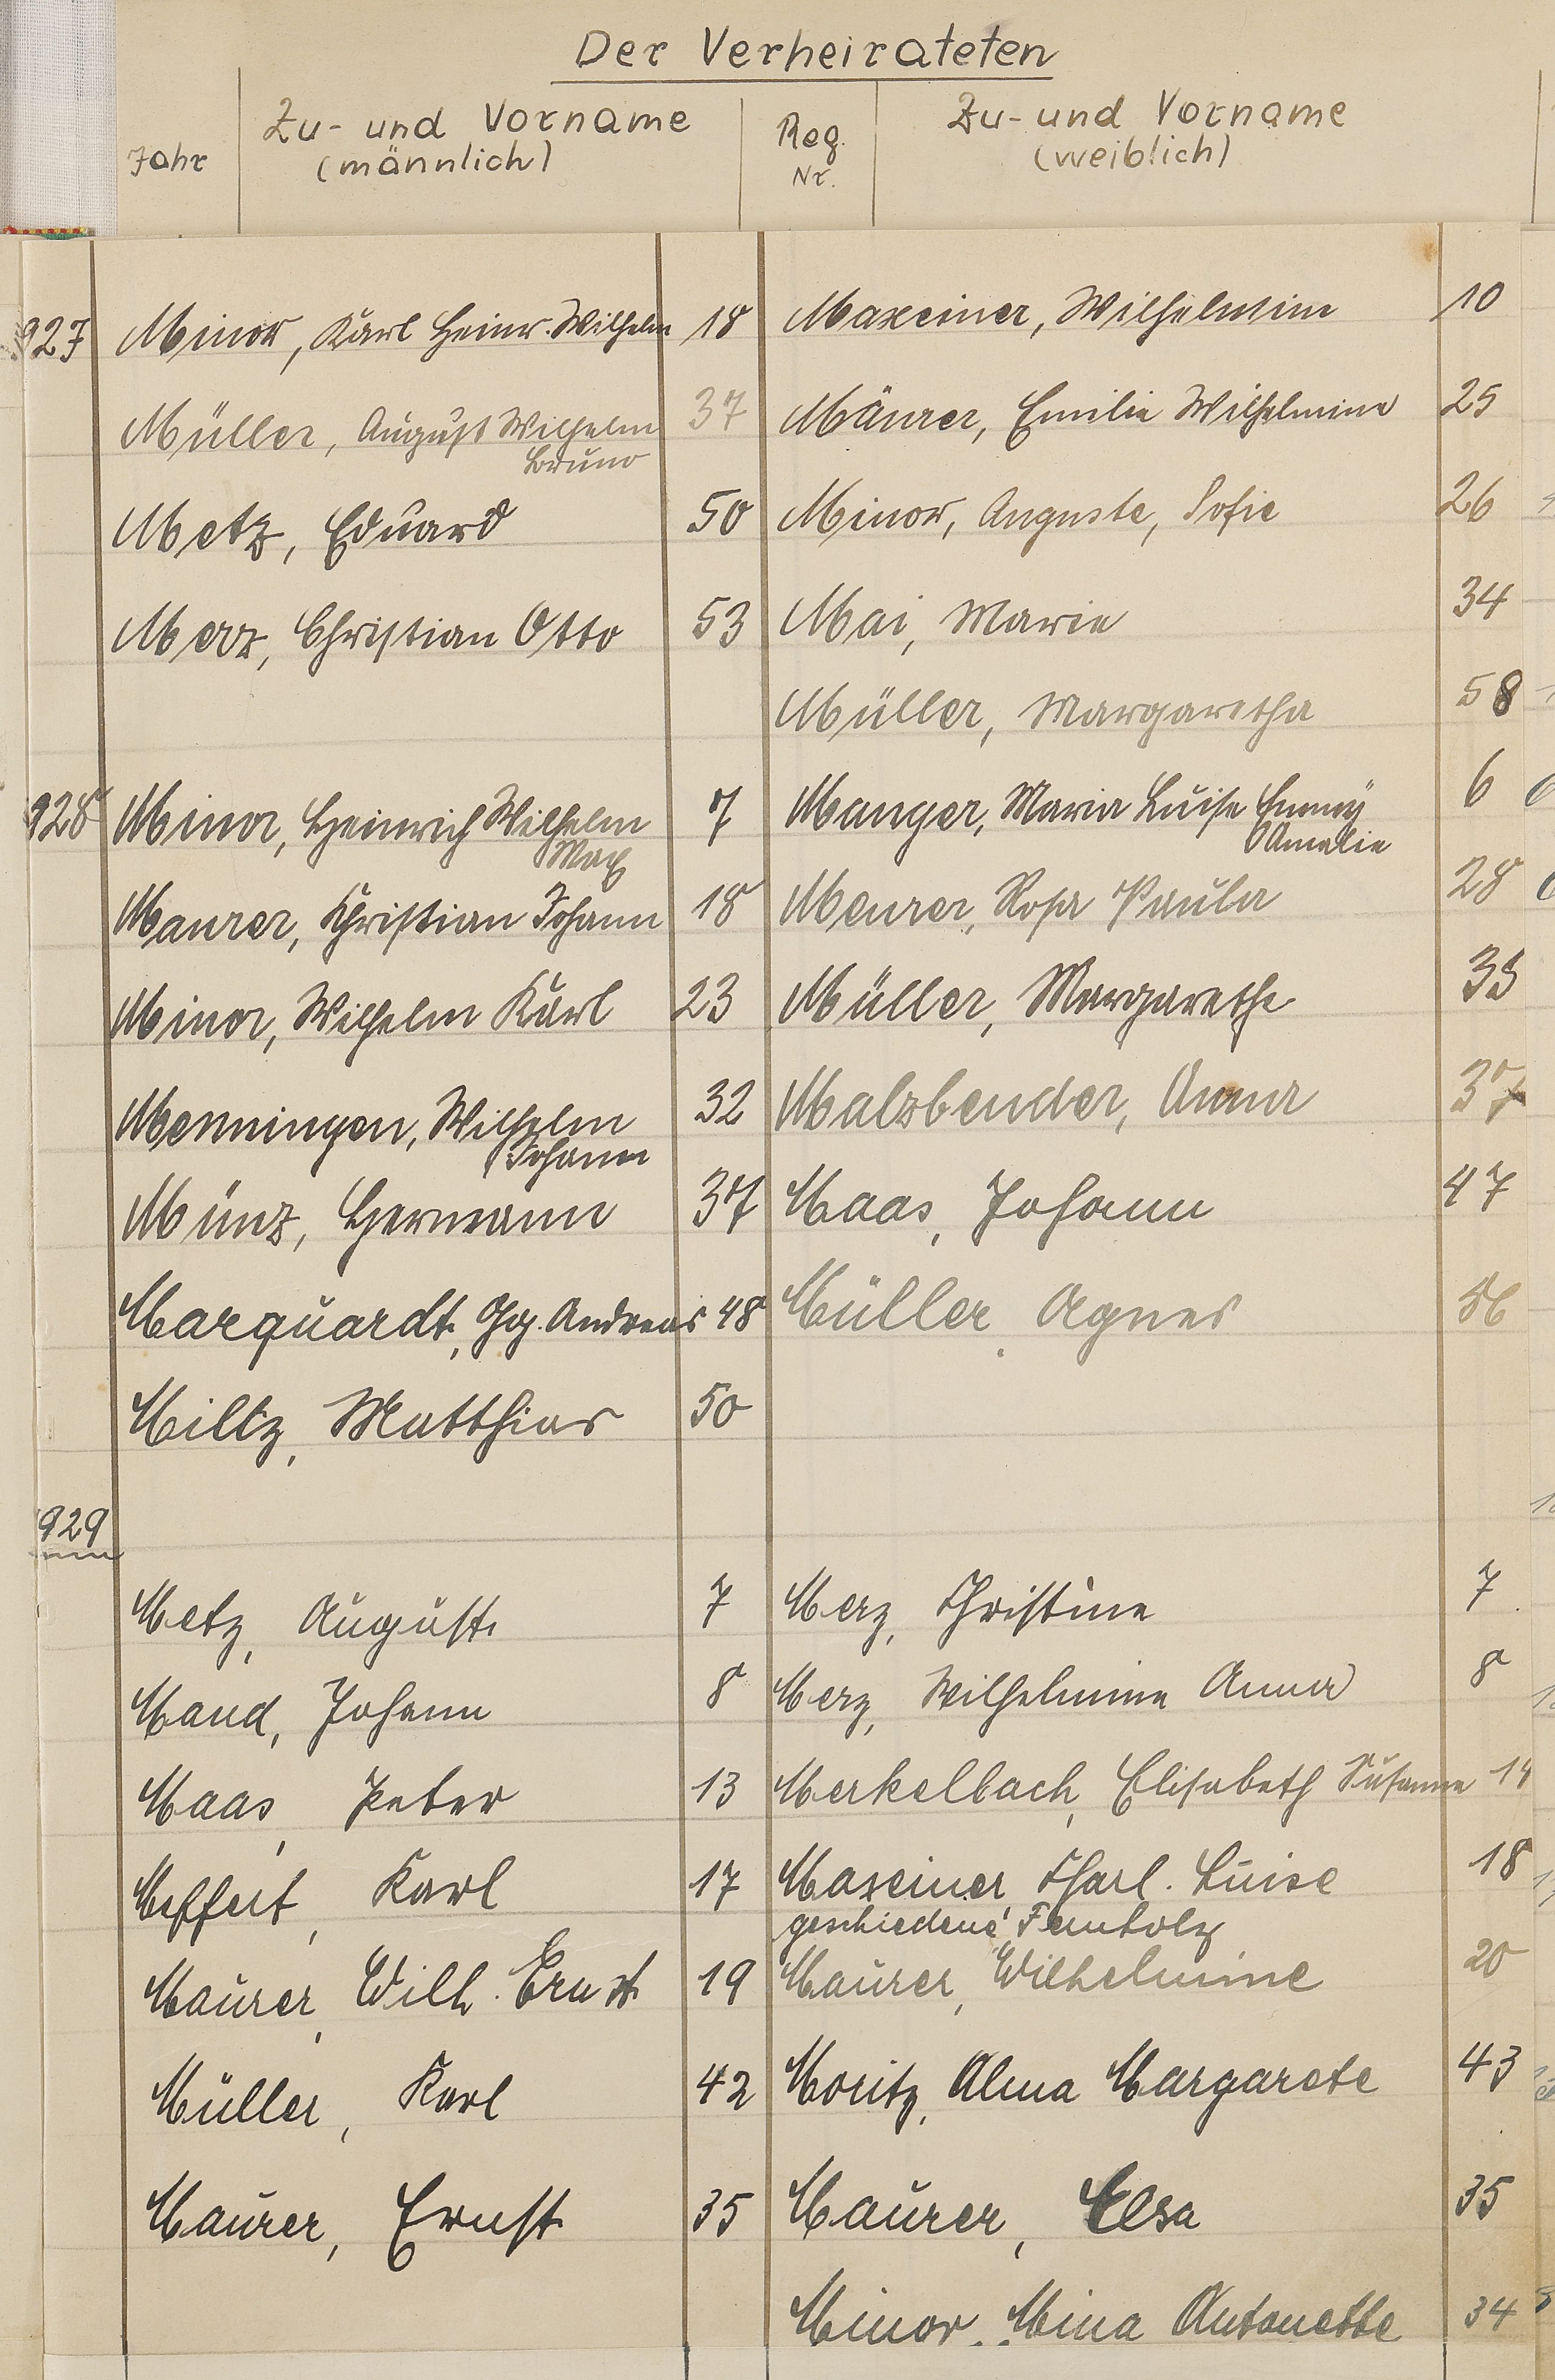 Der Verheirateten
Jahr Zu- und Vorname (männlich) Reg. Nr. Zu- und Vorname (weiblich)
927 Minor, Karl Heinr. Wilhelm 18 Maxeiner, Wilhelmine 10
Müller, August Wilhelm 37 Mäurer, Emilie Wilhelmine 25
Bruno
Metz, Eduard 50 Minor, Auguste, Sofie 26
Merz, Christian Otto 53 Mai, Marie 34
Müller, Margaretha 58
928 Minor, Heinrich Wilhelm 7 Manger, Maria Luise Emmy 6
Max Amalie
Maurer, Christian Johann 18 Meurer, Rosa Paula 28
Minor, Wilhelm Karl 23 Müller, Margarethe 33
Menningen, Wilhelm 32 Malzbender, Anna 37
Johann
Münz, Hermann 37 Maas, Johann 47
Marquardt, Gg. Andreas 48 Müller, Agnes 56
Miltz, Matthias 50
1929
Metz, August 7 Merz, Christine 7
Mand, Johann 8 Merz, Wilhelmine Anna 8
Maas, Peter 13 Merkelbach, Elisabeth Susanne 14
Meffert, Karl 17 Maxeiner Charl. Luise 18
geschiedene
Maurer, Wilh. Ernst 19 Maurer, Wilhelmine 20
Müller, Karl 42 Moritz, Alma Margarete 43
Maurer, Ernst 35 Maurer, Elsa 35
Minor, Mina Antonette 34